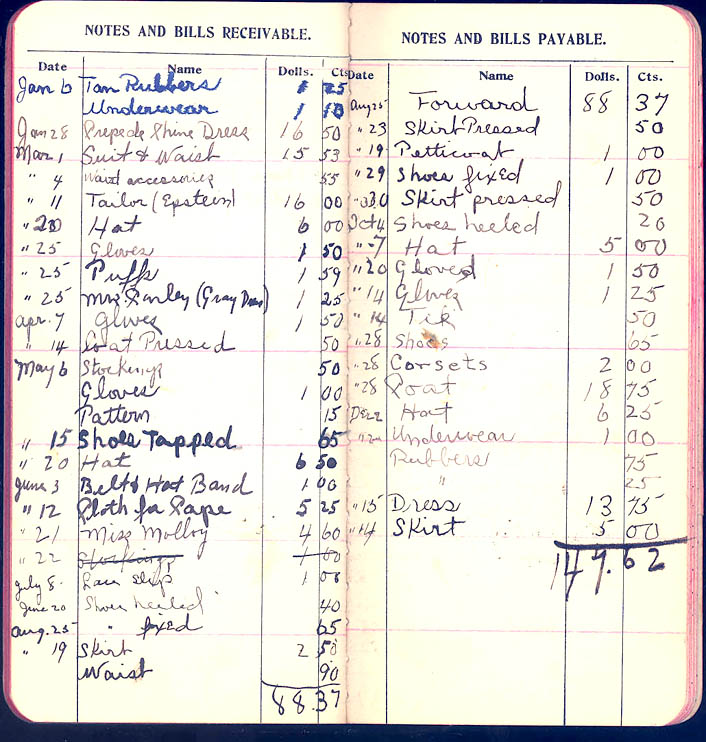 NOTES AND BILLS RECEIVABLE.
Date Name Dolls. Cts.
Jan 6 Tan Rubbers 1 25
Underwear 1 10
Jan 28 Dress 16 50
Mar. 1 Suit & Waist 15 53
" 4 Waist accessories 55
" 11 Tailor (Epstein) 16 00
" 20 Hat 6 00
" 25 Gloves 1 50
" 25 Puffs 1 59
" 25 Mrs (Gray Dress) 1 25
Apr. 7 Gloves 1 50
" 14 Coat Pressed 50
May 6 Stockings 50
Gloves 1 00
Pattern 15
" 15 Shoes Tapped 65
" 20 Hat 6 50
June 3 Belt & Hat Band 1 00
" 12 Cloth for Cape 5 25
" 21 Miss Molloy 4 60
" 22 Stockings 1 00
July 8. slip 1 00
June 20 Shoes heeled 40
Aug. 25 " fixed 65
" 19 Skirt 2 50
Waist 90
88.37
NOTES AND BILLS PAYABLE.
Date Name Dolls. Cts.
Aug 25 Forward 88 37
" 23 Skirt Pressed 50
" 19 Petticoat 1 00
" 29 Shoes fixed 1 00
" 30 Skirt pressed 50
Oct 4 Shoes heeled 20
" 7 Hat 5 00
" 20 Gloves 1 50
" 14 Gloves 1 25
" 14 Tie 50
" 28 Shoes 65
" 28 Corsets 2 00
" 28 Coat 18 75
Dec 2 Hat 6 25
" 2 Underwear 1 00
Rubbers 75
" 25
" 15 Dress 13 75
" 14 Skirt 5 00
149.62